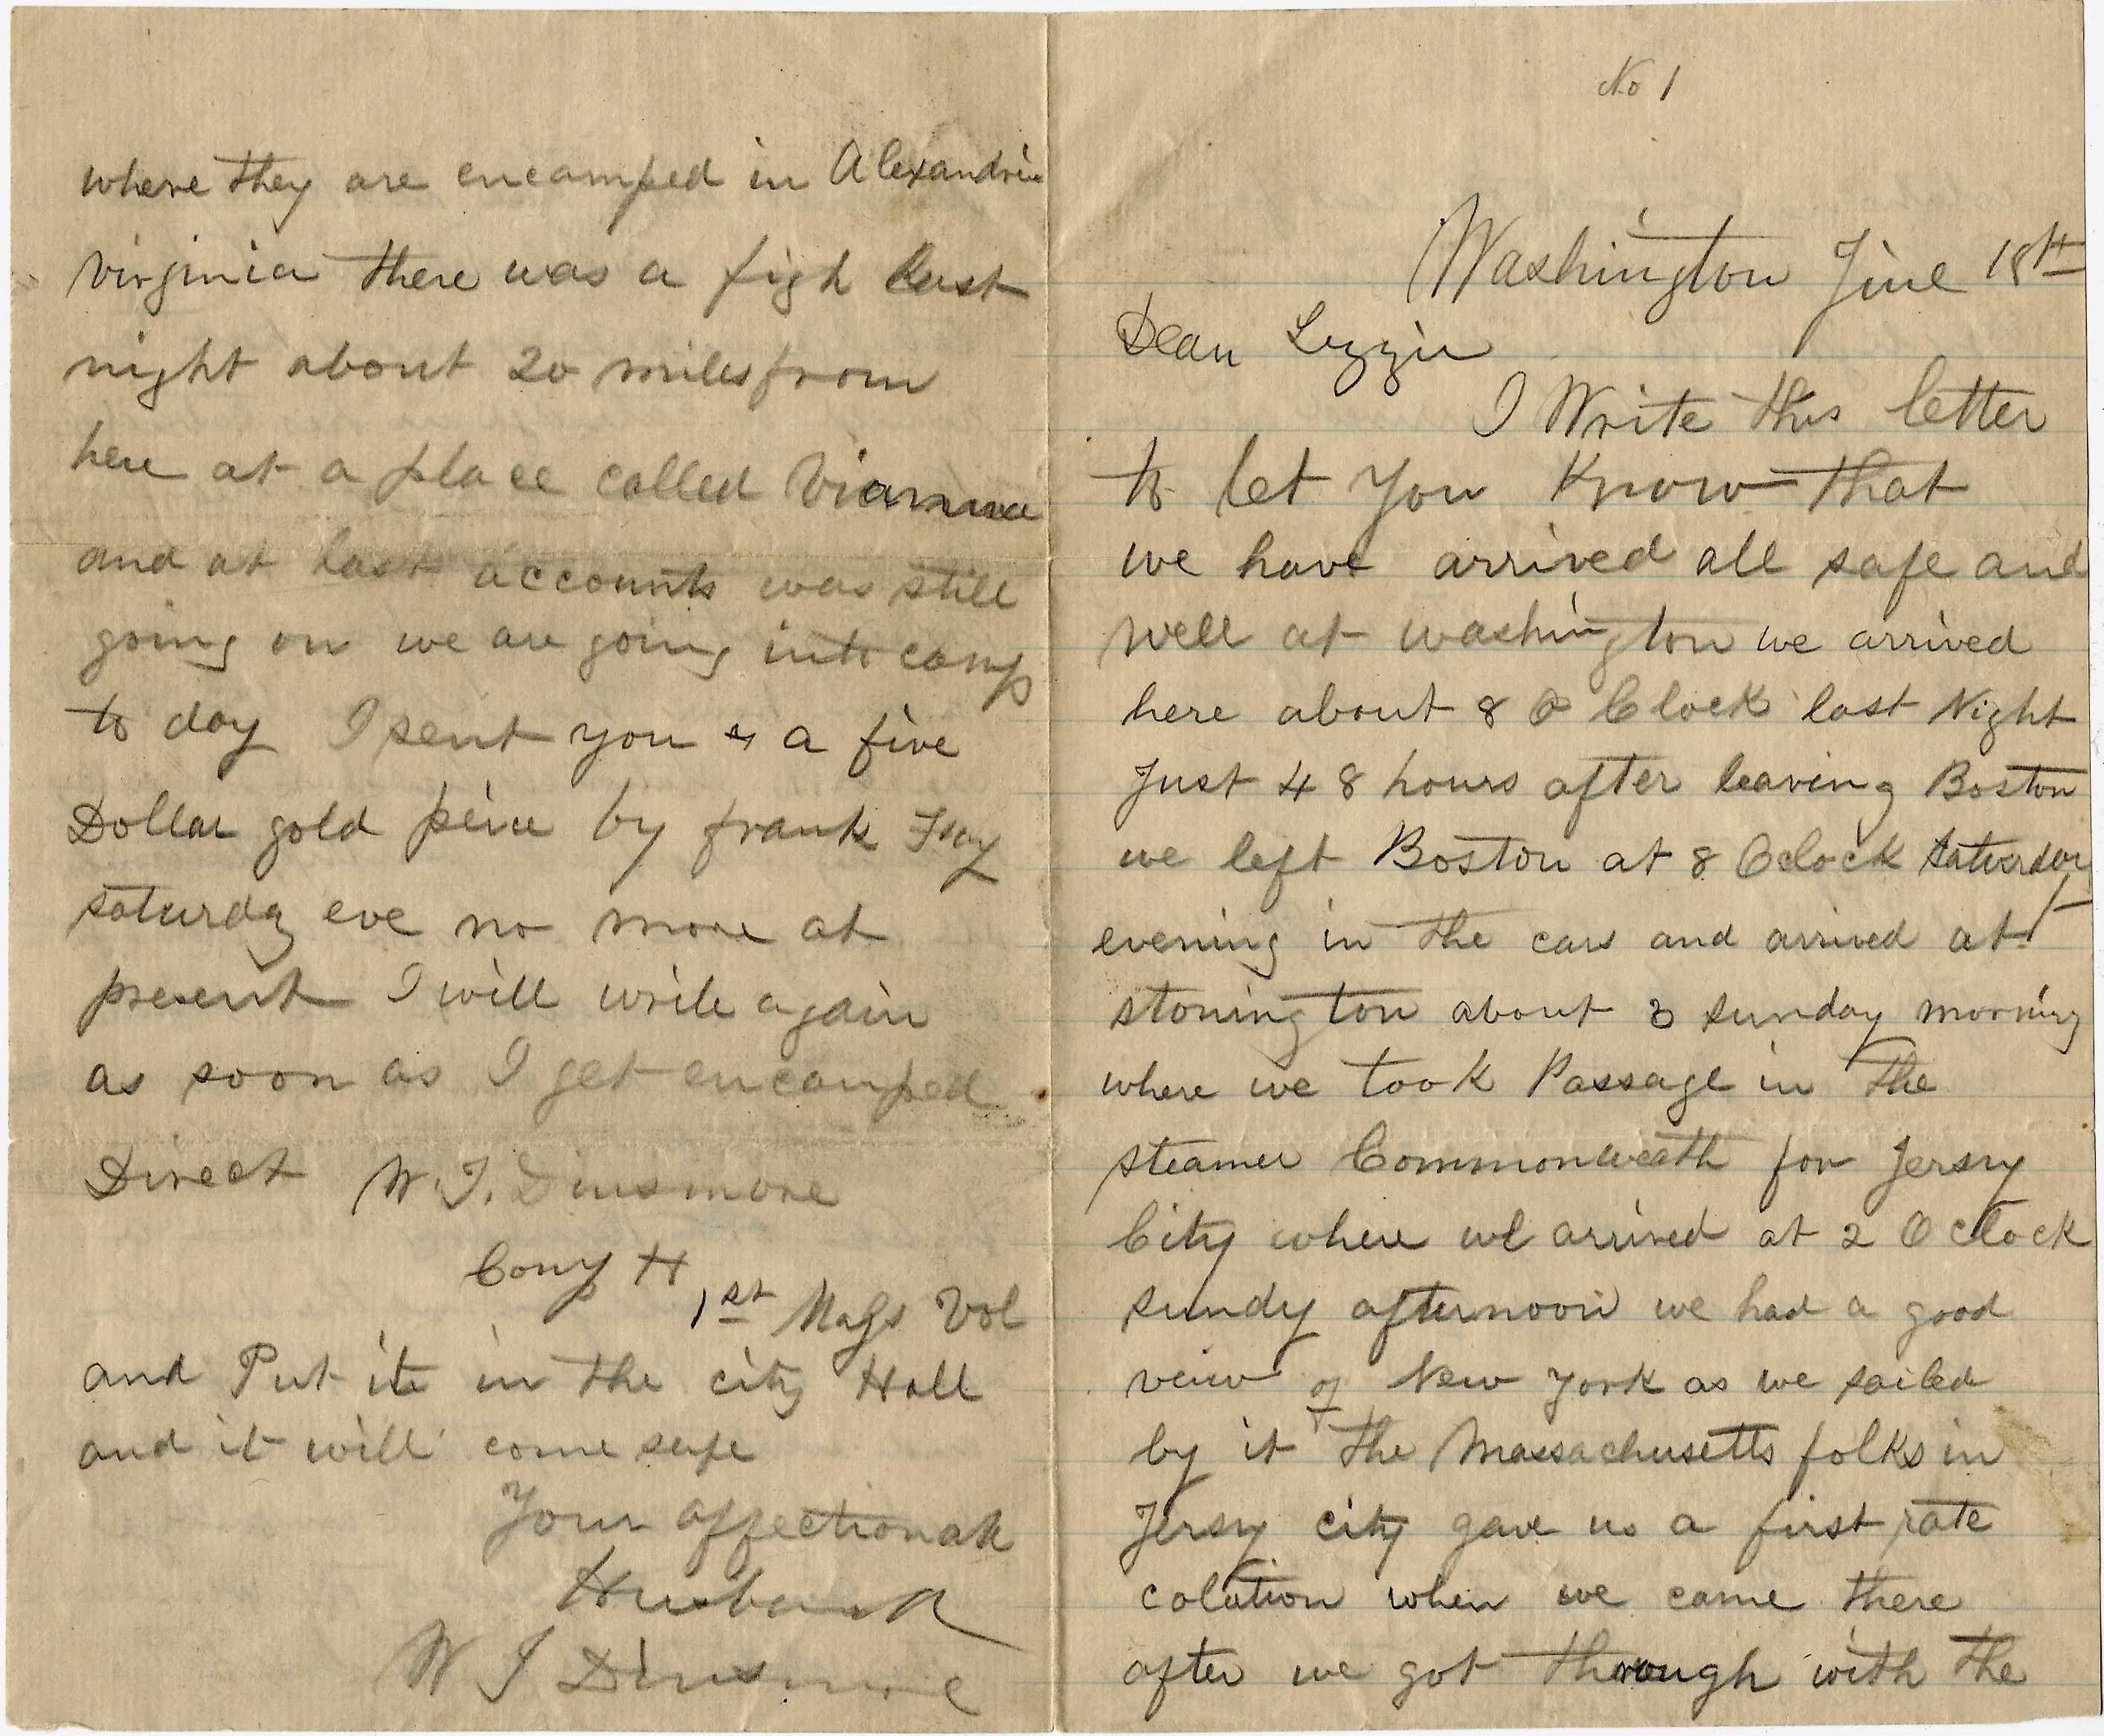 No 1
Washington June 18th
Dear Lizzie
I Write this letter
to let You Know that
we have arrived all safe and
well at washington we arrived
here about 8 O Clock last Night
Just 48 hours after leaving Boston
we left Boston at 8 Oclock Saturday
evening in the cars and arrived at
stonington about 3 sunday morning
where we took Passage in the
steamer Commonweath for Jersry
City where we arrived at 2 O clock
sundy afternoon we had a good
veiw of New York as we sailed
by it the Massachusetts folks in
Jersry city gave us a first rate
colation when we came there
after we got through with the
where they are encamped in Alexandria
virginia there was a figh last
night about 20 miles from
here at a place called Vianna
and at last accounts was still
going on we are going into camp
to day I sent you a five
Dollar gold peice by frank
saturday eve no more at
present I will write again
as soon as I get encamped
Direct W. J. Dinsmore
Comy H
1st Mass Vol
and Put it in the city Hall
and it will come safe
Your affectionate
Husband
W J Dinsmore